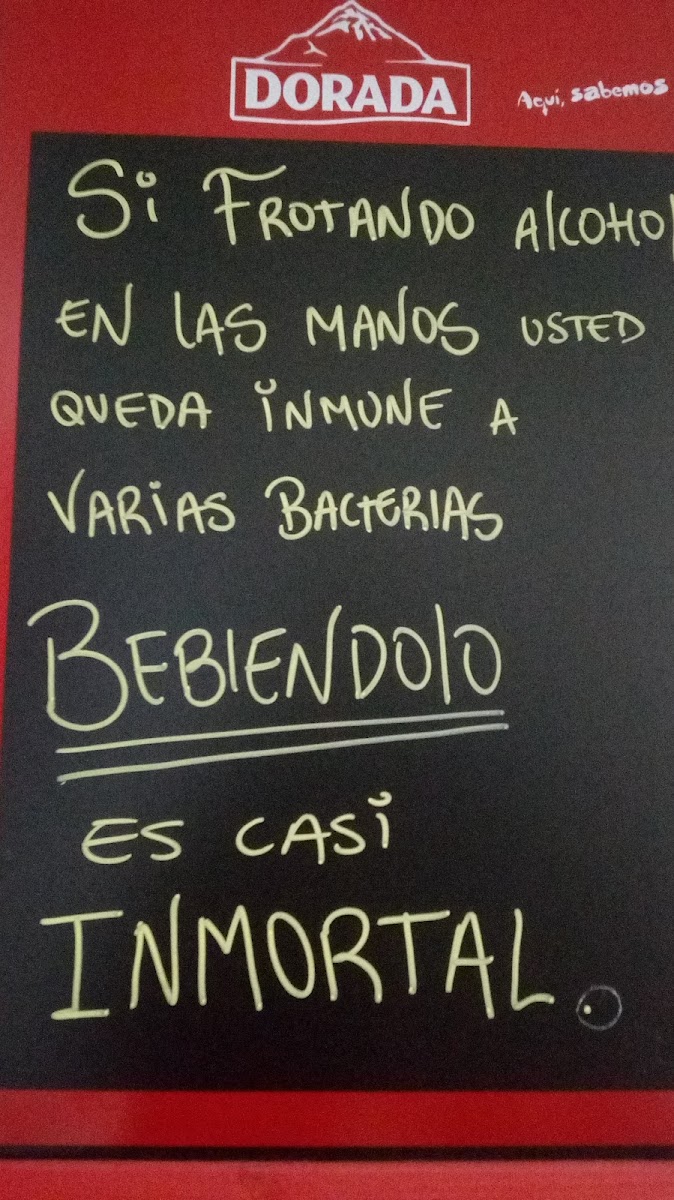 DORADA
Aquí, sabemos
Si FROTANDO AlCOHOl
EN LAS MANOS USTED
QUEDA iNMUNE A
VARiAS BACTERIAS
BEBIENDOlO
ES CASi
INMORTAL.